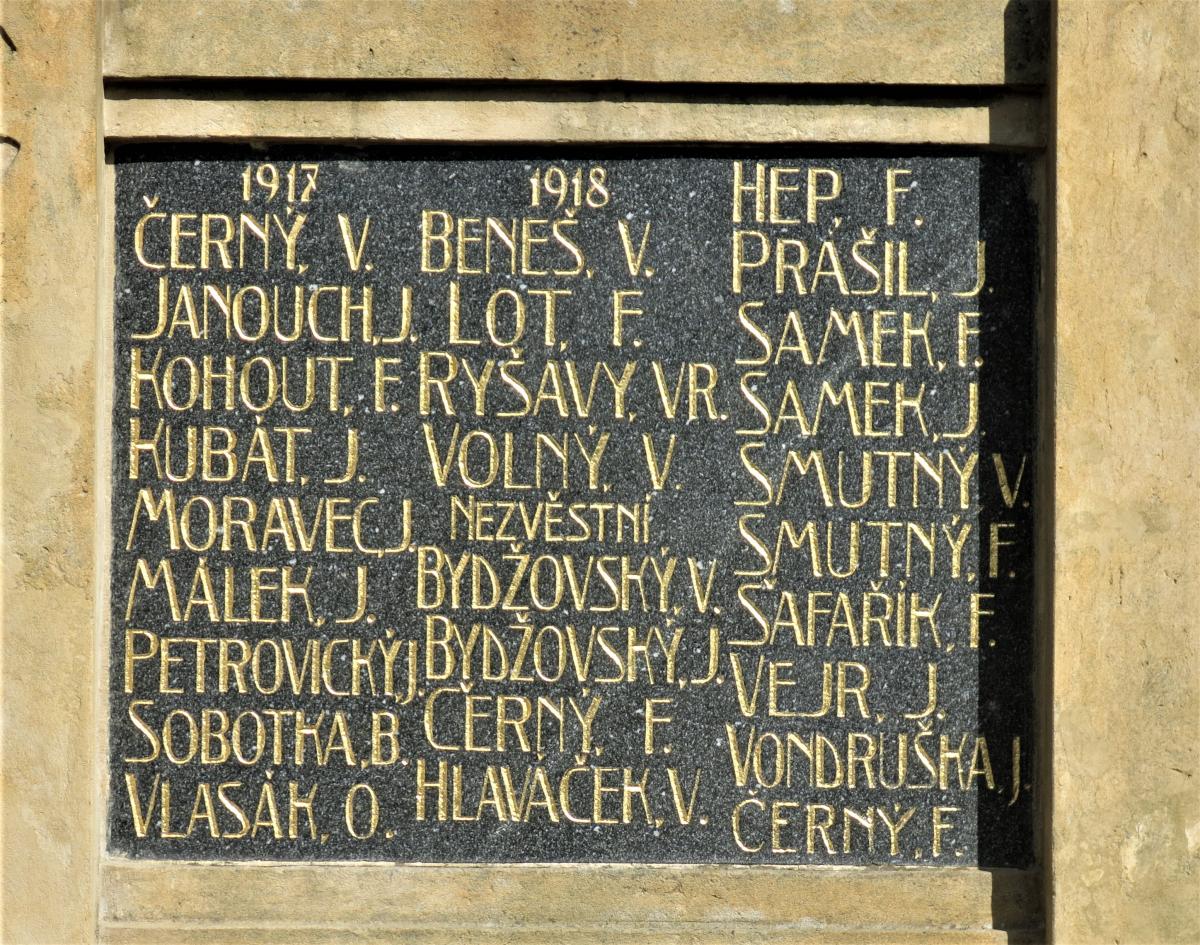 1917
ČERNÝ, V.
JANOUCH, J.
KOHOUT, F.
KUBÁT, J.
MORAVEC, J.
MÁLEK, J.
PETROVICKÝ, J.
SOBOTKA, B.
VLASÁK, O.
1918
BENEŠ, V.
LOT, F.
RYŠAVÝ, VR.
VOLNÝ, V.
NEZVĚSTNÍ
BYDŽOVSKÝ, V.
BYDŽOVSKÝ, J.
ČERNÝ, F.
HLAVÁČEK, V.
HEP, F.
PRÁŠIL, J.
SAMEK, F.
SAMEK, J.
SMUTNÝ V.
SMUTNÝ, F.
ŠAFAŘÍK, F.
VEJR, J.
VONDRUŠKA, J.
ČERNÝ, F.